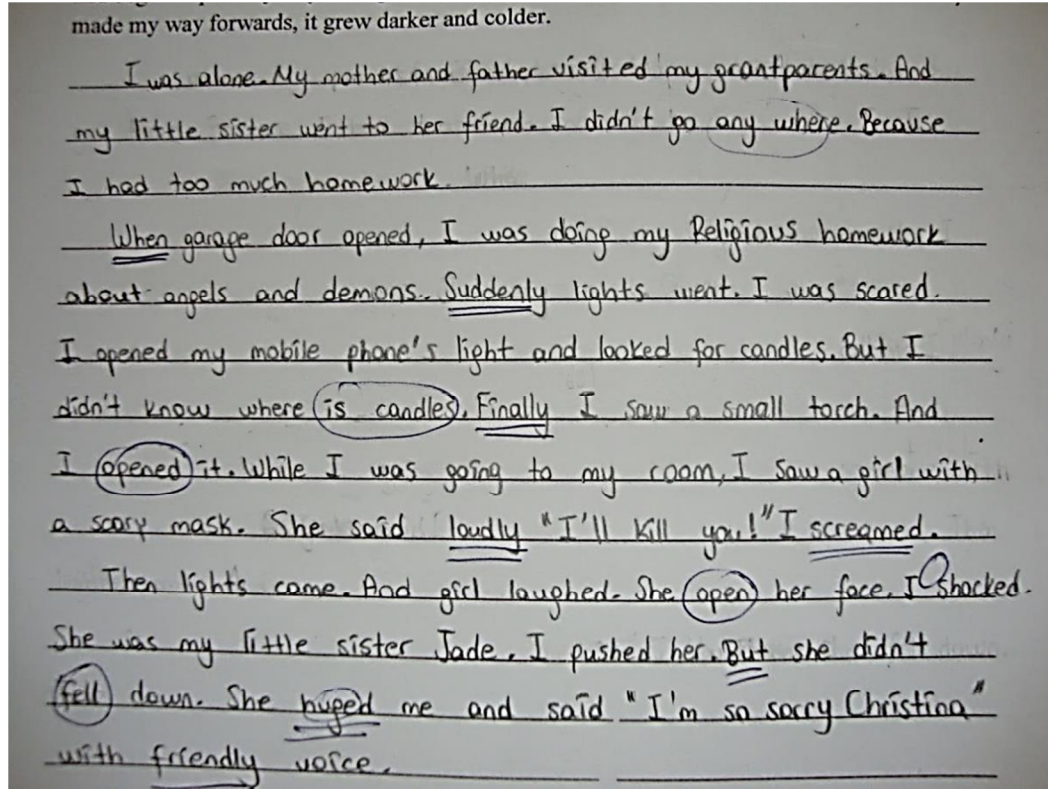 made my way forwards, it grew darker and colder.
I was alone. My mother and father visited my grantparents. And
my little sister went to her friend. I didn't go any where. Because
I had too much homework.
When garage door opened, I was doing my Religious homework
about angels and demons. Suddenly lights went. I was scared.
I opened my mobile phone's light and looked for candles. But I
didn't know where is candles. Finally I saw a small torch. And
I opened it. While I was going to my room, I saw a girl with
a scary mask. She said loudly "I'll kill you!" I screamed.
Then lights came. And girl laughed. She open her face. I shocked.
She was my little sister Jade. I pushed her. But she didn't
fell down. She huged me and said "I'm so sorry Christina"
with friendly voice.